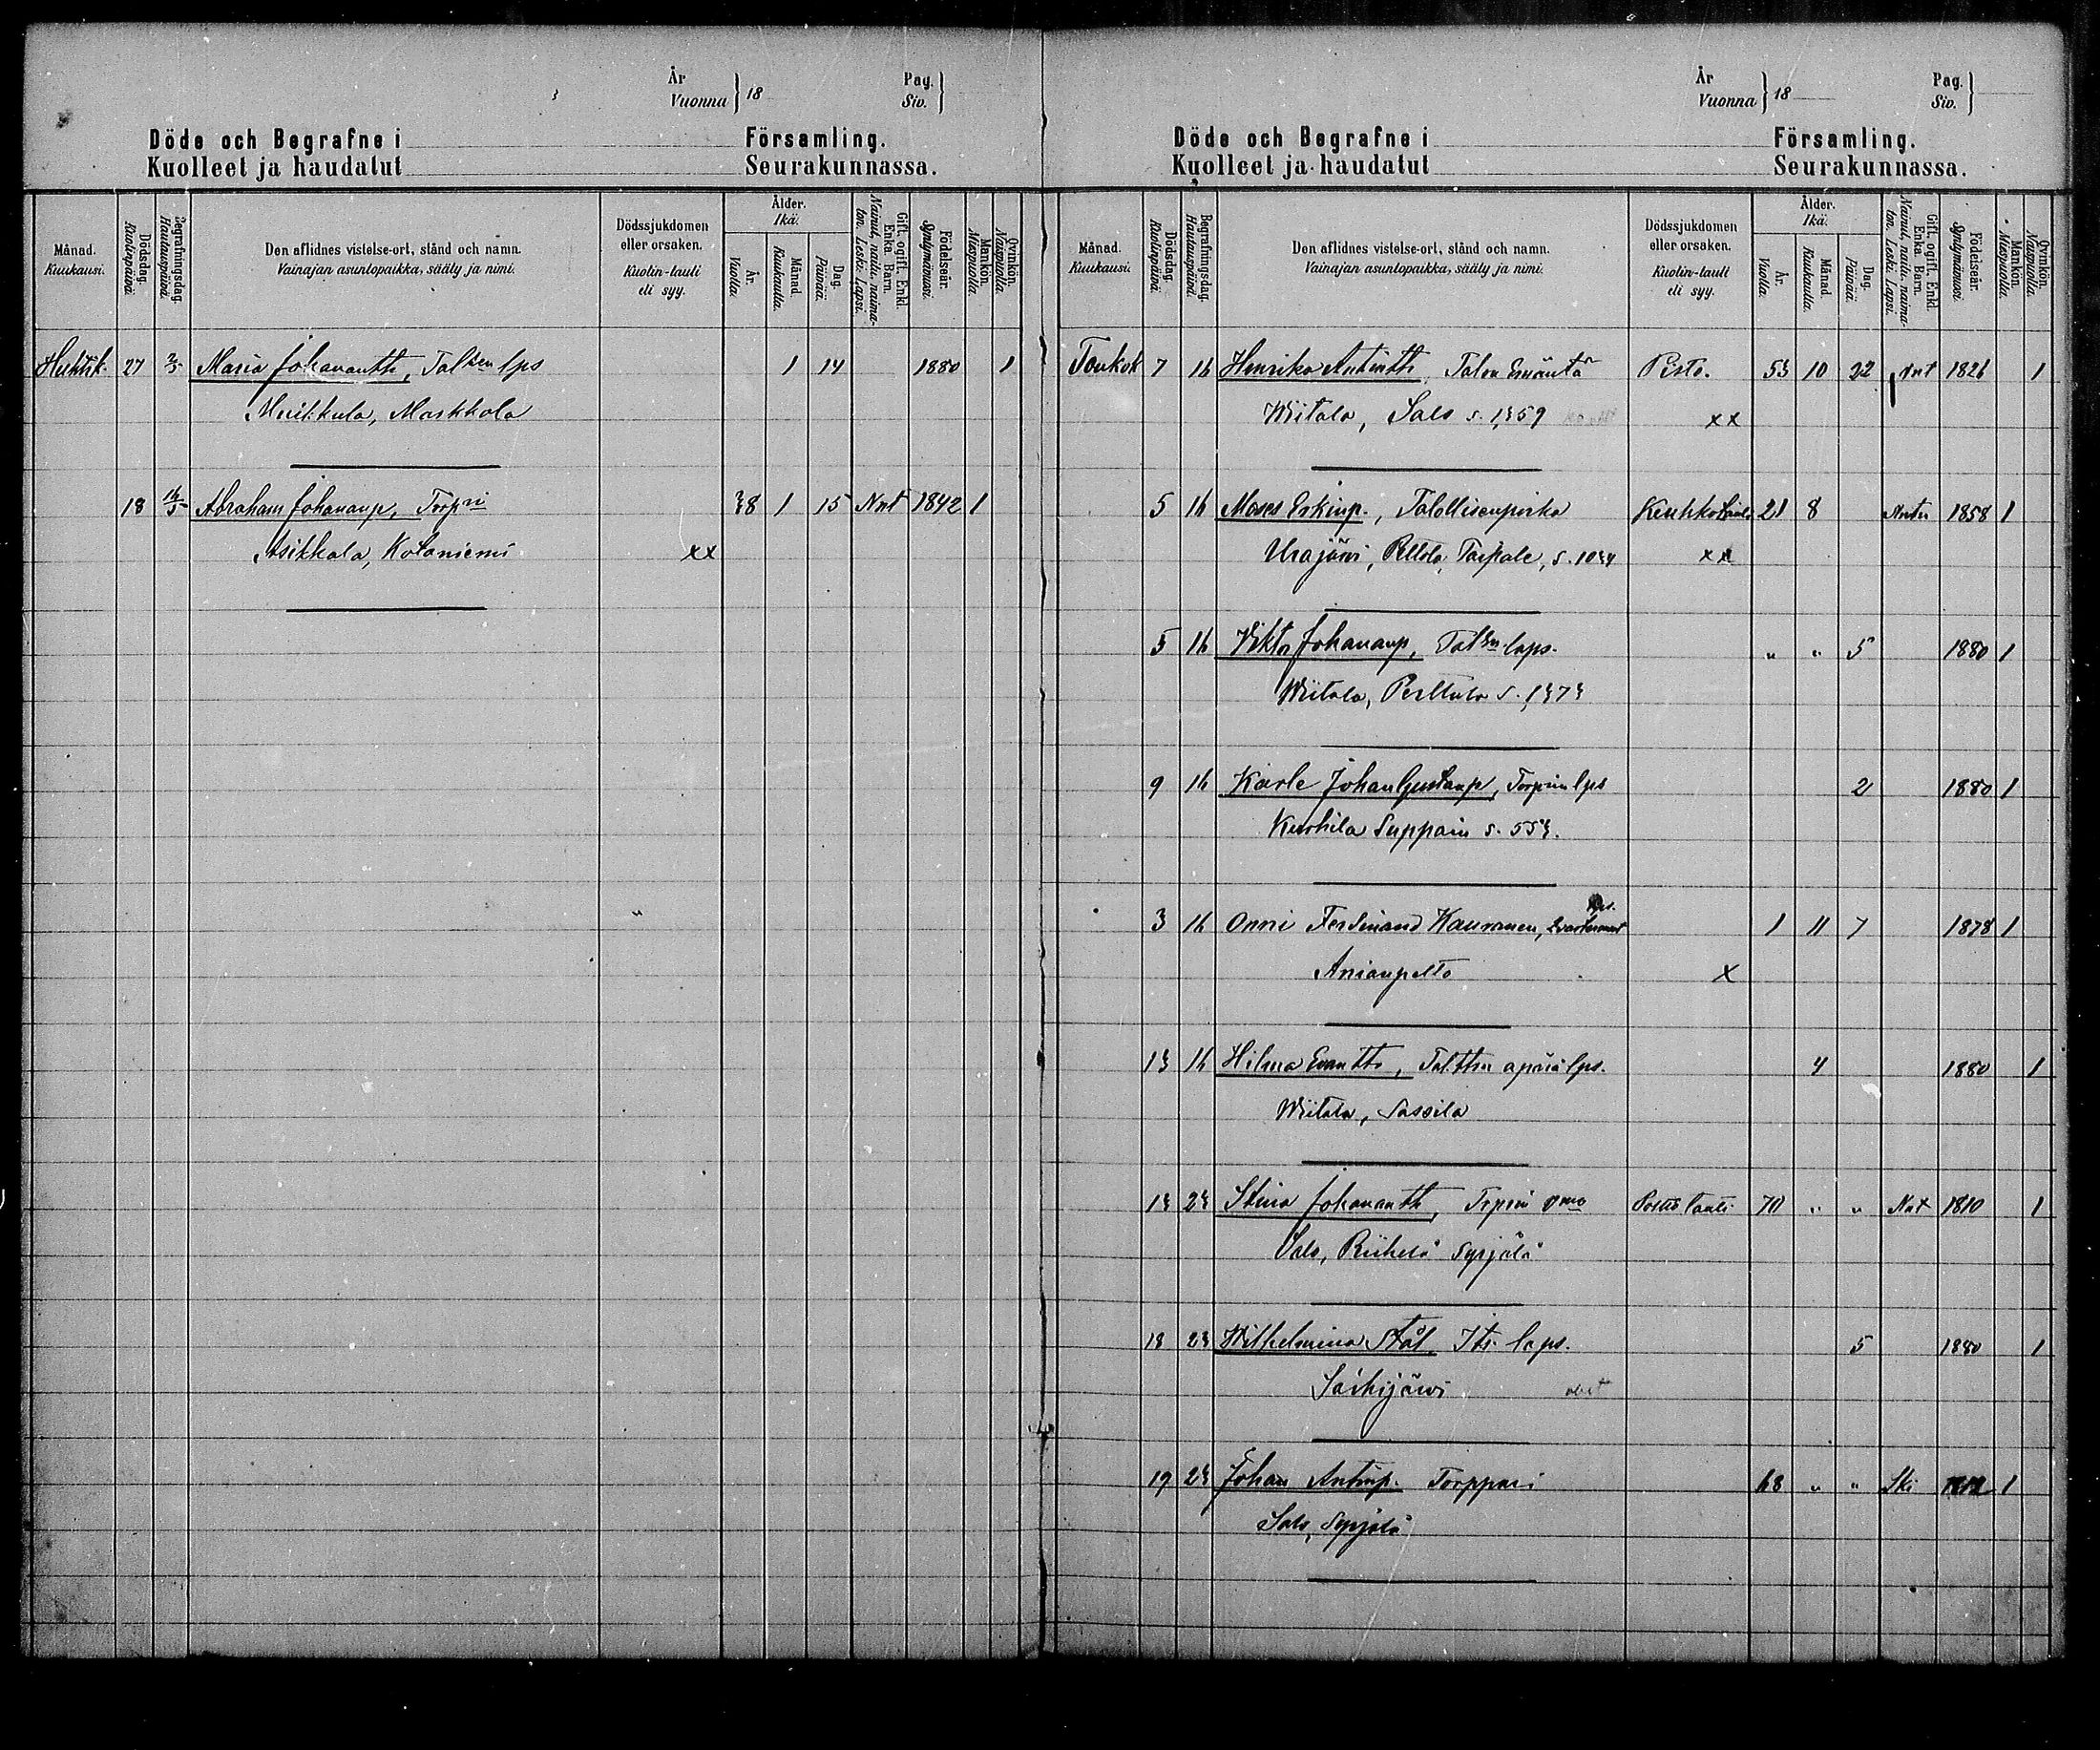 År
Vuonna } 18
Pag.
Siv. }
Döde och Begrafne i Församling.
Kuolleet ja haudatut Seurakunnassa.
Månad.
Kuukausi.
Dödsdag.
Kuolinpäivä.
Begrafningsdag.
Hautauspäivä.
Den aflidnes vistelse-ort, stånd och namn.
Vainajan asuntopaikka, sääly ja nimi.
Dödssjukdomen
eller orsaken.
Kuolin-tauti
eli syy.
Ålder.
Ikä.
År.
Vuotta.
Månad.
Kuukautta.
Dag.
Päivää.
Gift, ogift, Enkl.
Enka. Barn.
Nainut, naitu, naima-
ton. Leski. Lapsi.
Födelseår.
Syntymävuosi.
Mankön.
Miespuolta.
Qvinkön.
Naispuolta.
Huhtik. 27 2/5 Maria Johanantr, Talsen lps 1 14 1880 1
Muikkula, Markkola
18 16/5 Abraham Johananp, Torpri 38 1 15 Nnt 1842 1
Asikkala, Kotaniemi xx
År
Vuonna } 18
Pag.
Siv. }
Döde och Begrafne i Församling.
Kuolleet ja haudatut Seurakunnassa.
Månad.
Kuukausi.
Dödsdag.
Kuolinpäivä.
Begrafningsdag.
Hautauspäivä.
Den aflidnes vistelse-ort, stånd och namn.
Vainajan asuntopaikka, sääly ja nimi.
Dödssjukdomen
eller orsaken.
Kuolin-tauti
eli syy.
Ålder.
Ikä.
År.
Vuotta.
Månad.
Kuukautta.
Dag.
Päivää.
Gift, ogift, Enkl.
Enka. Barn.
Nainut, naitu, naima-
ton. Leski. Lapsi.
Födelseår.
Syntymävuosi.
Mankön.
Miespuolta.
Qvinkön.
Naispuolta.
Toukok 7 16 Henrika Antintr Talon Emäntä Pisto. 53 10 22 Nnt 1826 1
Wiitala, Salo s. 1359 xx
5 16 Moses Erkinp., Talollisenpoika Keuhkotauti 21 8 Nntn 1858 1
Urajärvi, Peltola, Taipale, s. 1034 xx
5 16 Viktor Johananp, Talsen laps. " " 5 1880 1
Wiitala, Perttula s. 1373
9 16 Karle Johan Gustanp, Torpin lps 2 1880 1
Kurhila Suppain s. 553.
3 16 Onni Ferdinand Kauranen, lps. 1 11 7 1878 1
Anianpelto x
13 16 Hilma Evantr, Talttrn äpärä lps. 4 1880 1
Wiitala, Sassila
13 23 Stina Johanantr, Trprin vmo Poltto tauti 70 " " Nnt 1810 1
Salo, Riihelä Syrjälä
18 23 Wilhelmina Stål Its. laps. 5 1880 1
Särkijärvi
19 23 Johan Antinp. Torppari 68 " " Ski 1812 1
Salo, Syrjälä